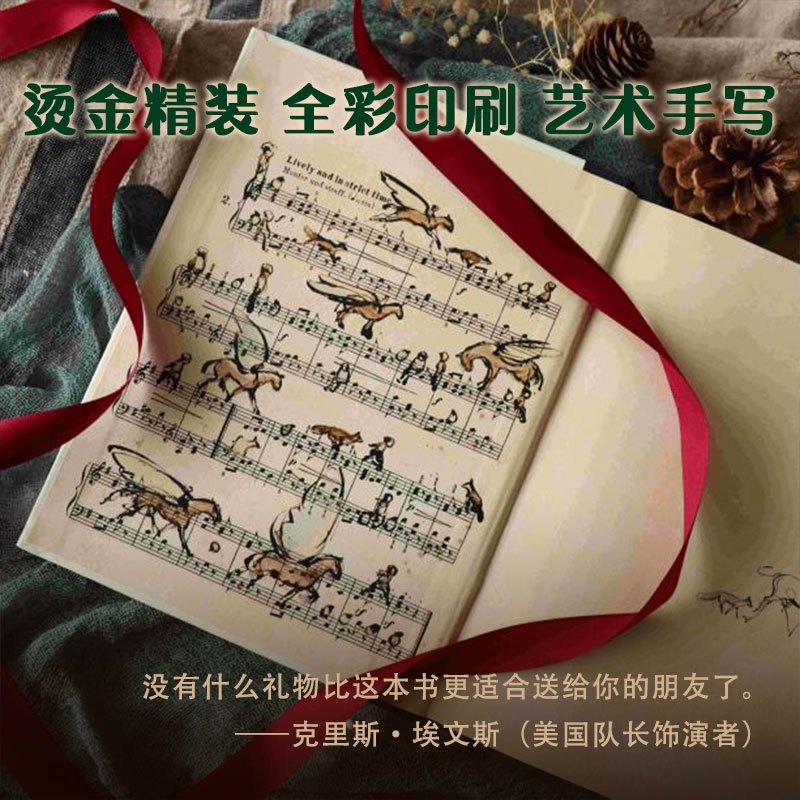 烫金精装 全彩印刷 艺术手写
Lively and in strict time
Munter und straff.
2.
没有什么礼物比这本书更适合送给你的朋友了。
——克里斯·埃文斯（美国队长饰演者）